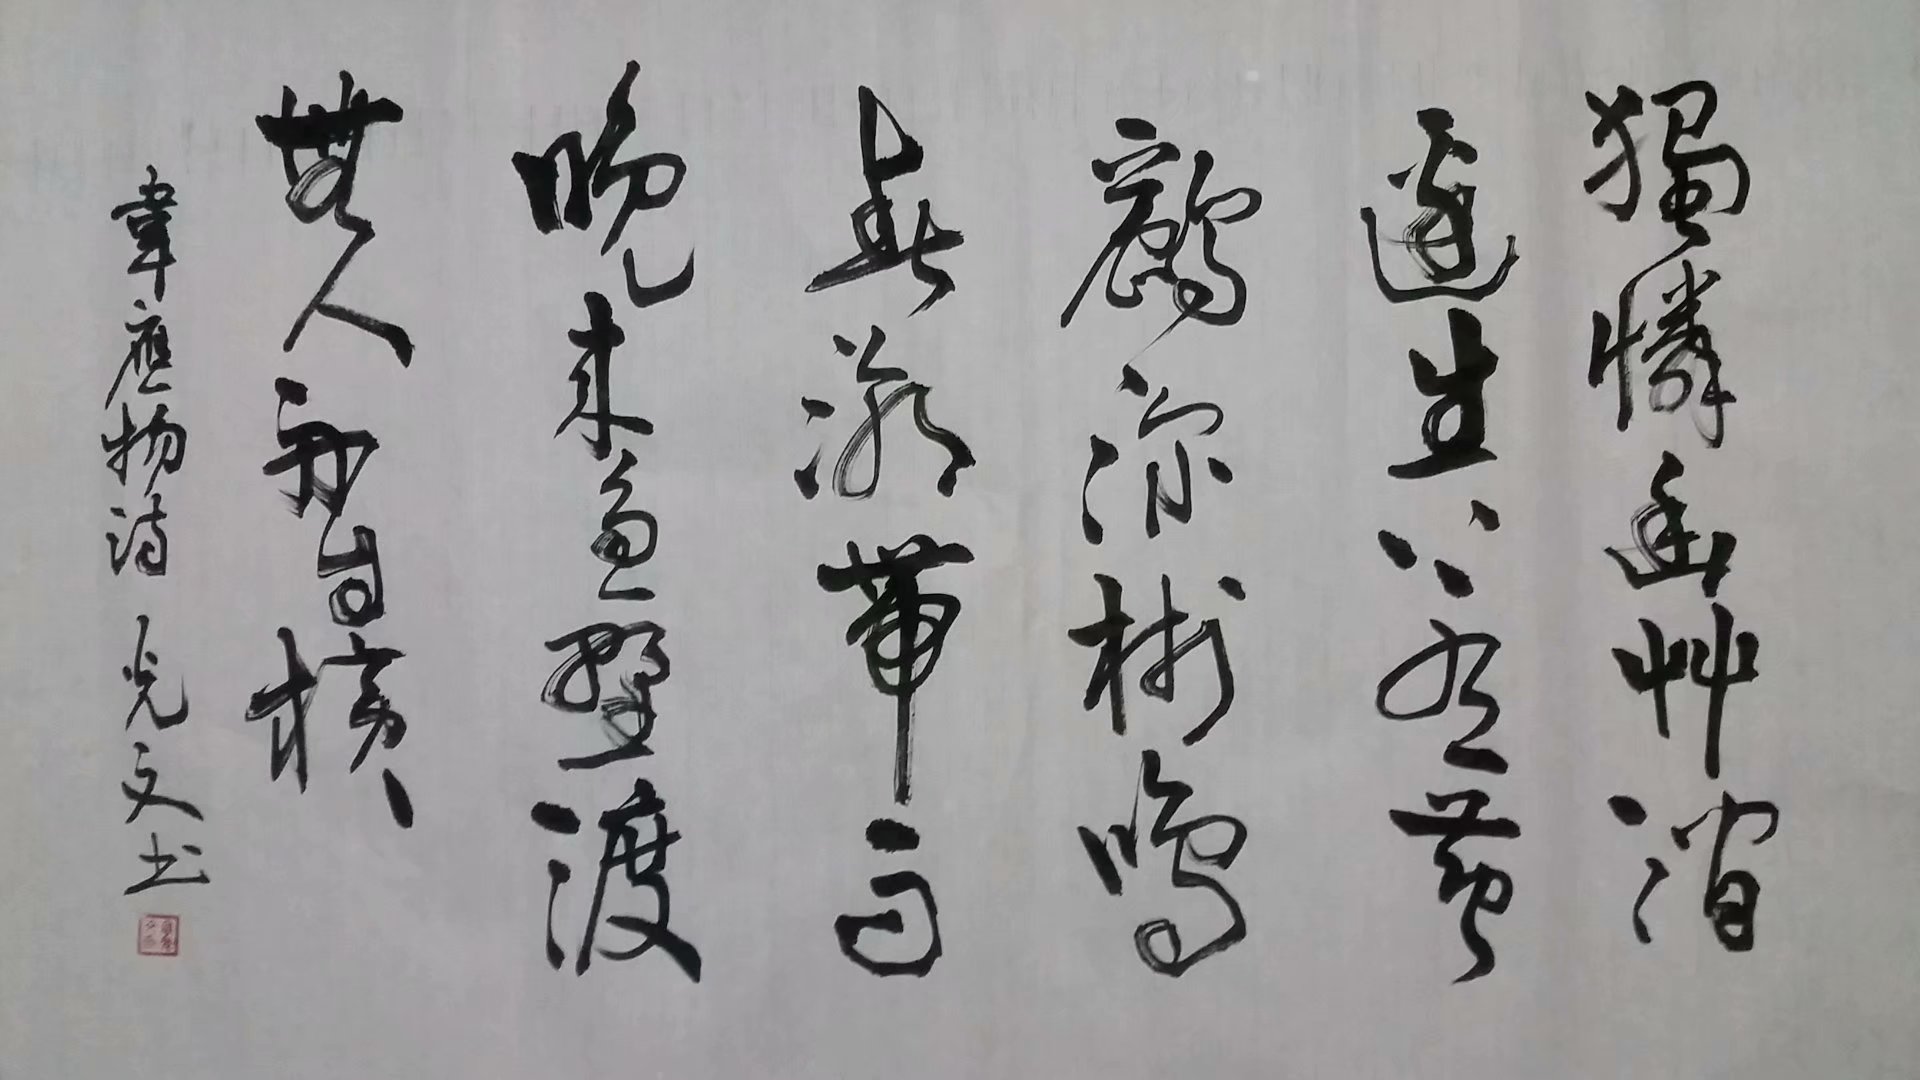 獨憐幽艸澗
邊生上有黃
鸝深树鳴
春潮帶雨
晚来急野渡
無人舟自橫
韋應物诗 光文书